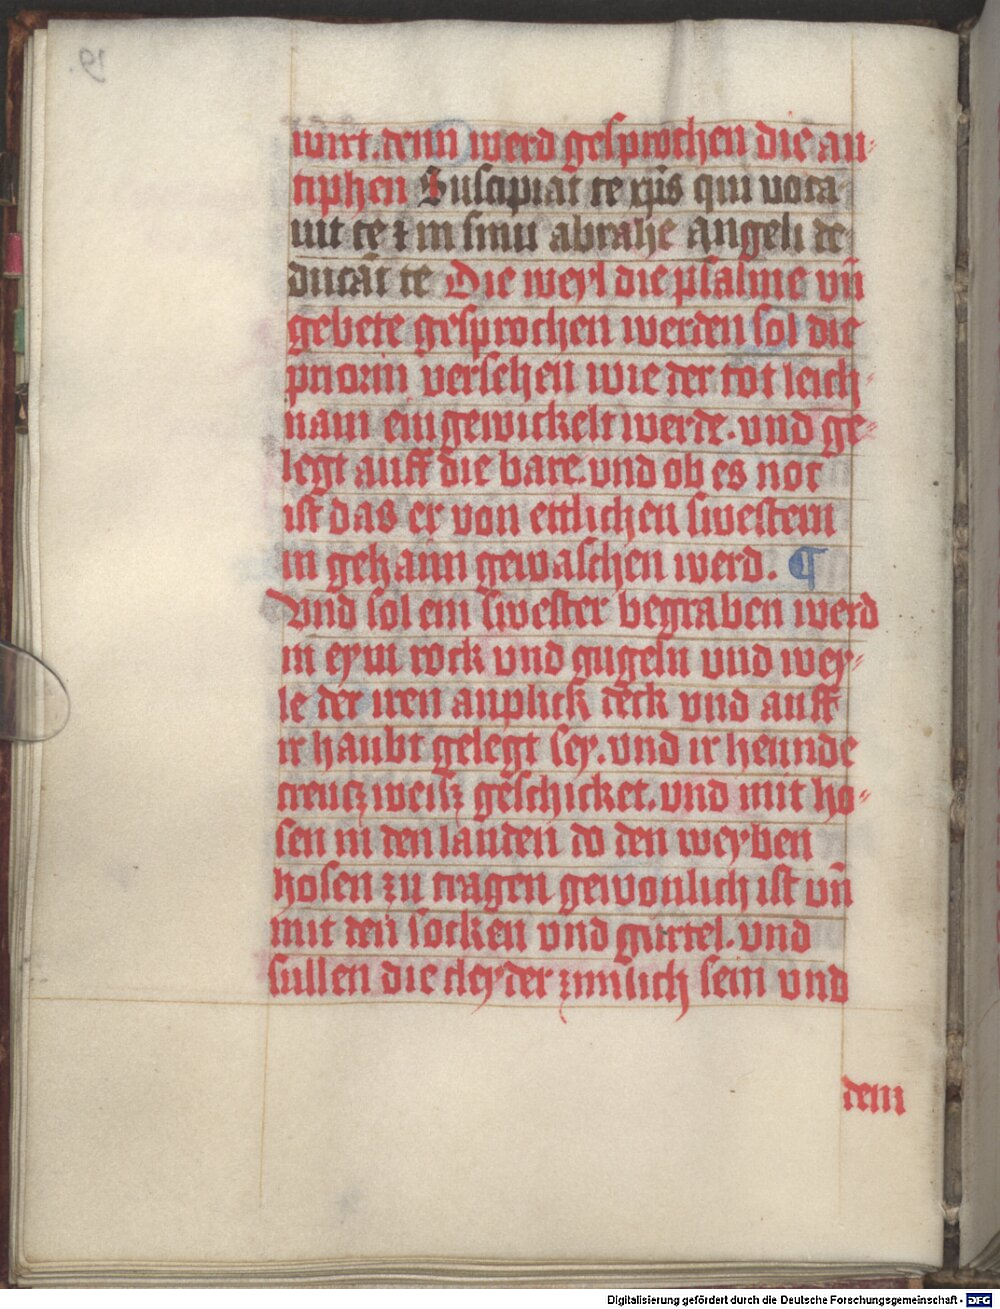 19.
wirt. denn werd gesprochen die an-
tiphen Suscipiat te xp̄s qui voca
uit te ⁊ in sinu abrahe angeli de
ducāt te Die weyl die psalme vn̄
gebete gesprochen werden sol die
priorin versehen wie der tot leich-
nam eingewickelt werde. vnd ge-
legt auff die bare. vnd ob es not
ist das er von ettlichen swestern
in geheim gewaschen werd. ¶
Vnd sol ein swester begraben werd
in eym rock vnd gugeln vnd wey-
le der iren anplick deck vnd auff
ir haubt gelegt sey. vnd ir hennde
creutzweisz geschicket. vnd mit ho-
sen in den landen do den weyben
hosen zu tragen gewonlich ist vn̄
mit den socken vnd gurtel. vnd
sullen die cleyder zimlich sein vnd
dem
Digitalisierung gefördert durch die Deutsche Forschungsgemeinschaft - DFG